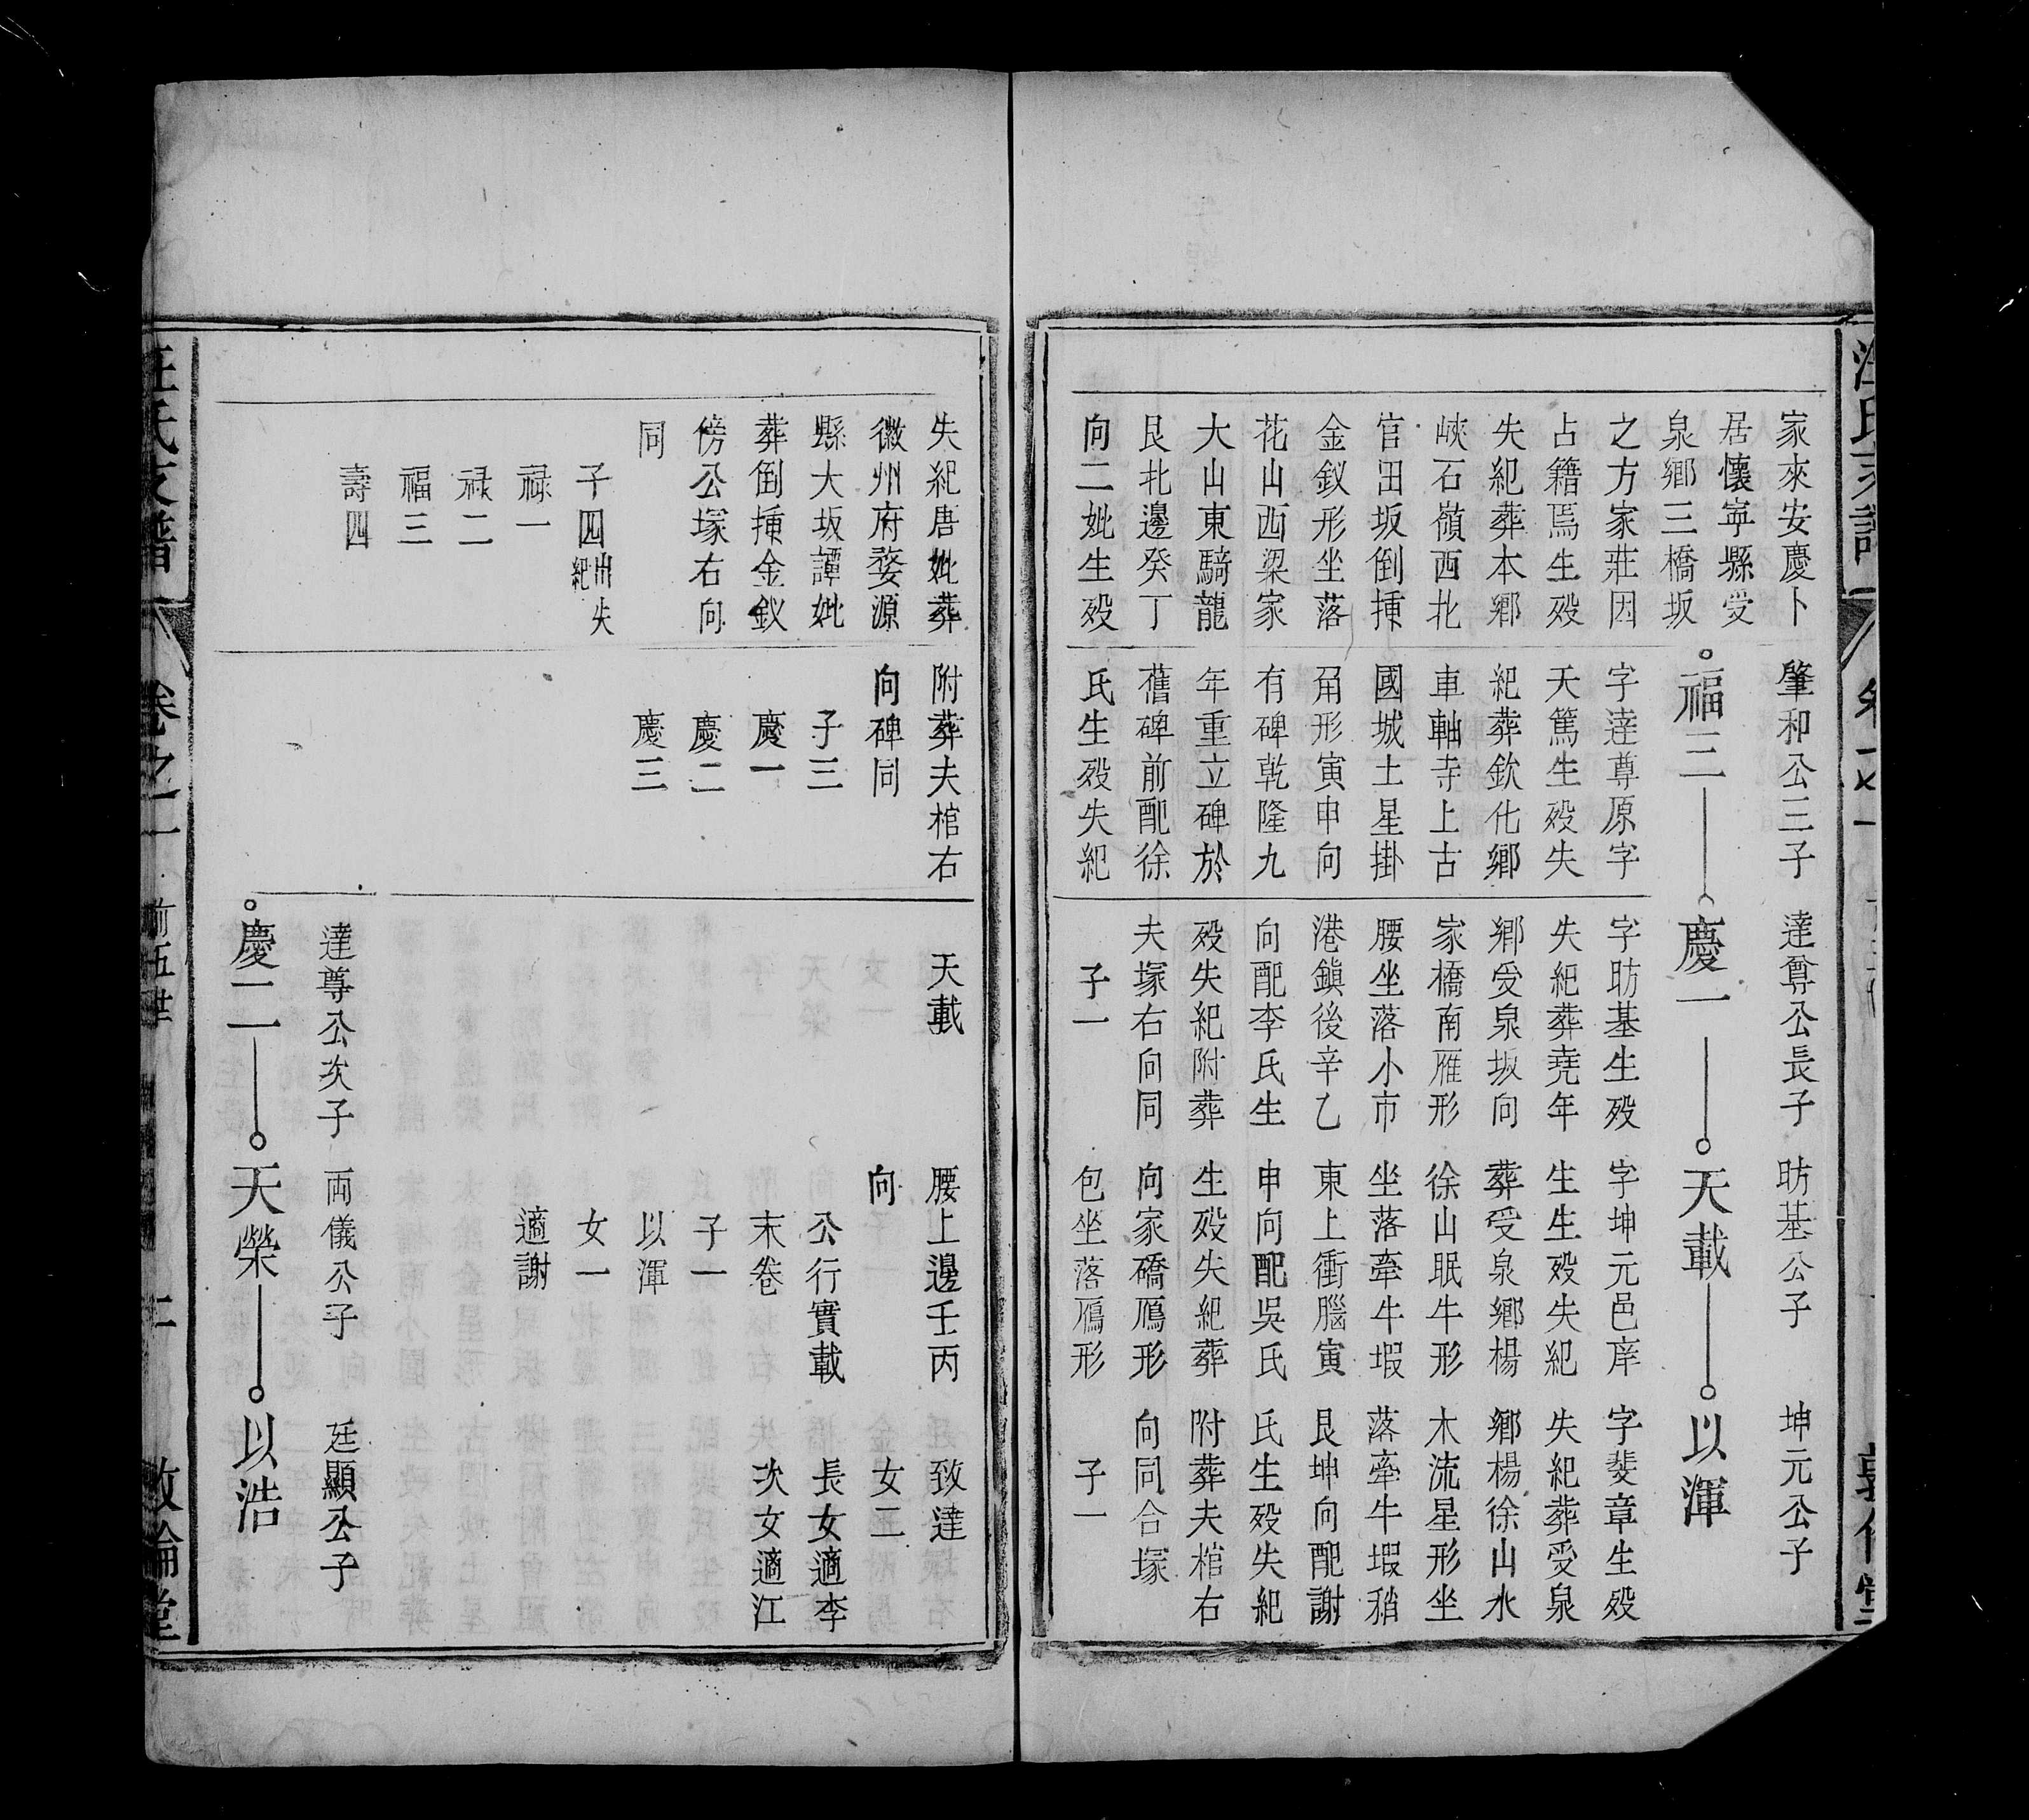 家來安慶卜
居懷寧縣受
泉鄉三橋坂
之方家莊因
占籍焉生殁
失紀葬本鄉
峽石嶺西北
官田坂倒揷
金釵形坐落
花山西梁家
大山東騎龍
艮北邊癸丁
向二妣生殁
肇和公三子
福三
字逹尊原字
天篤生殁失
紀葬欽化鄉
車軸寺上古
國城土星掛
角形寅申向
有碑乾隆九
年重立碑於
舊碑前配徐
氏生殁失紀
達尊公長子
慶一
字昉基生殁
失紀葬堯年
鄉受泉坂向
家橋南雁形
腰坐落小市
港鎮後辛乙
向配李氏生
殁失紀附葬
夫塚右向同
子一
昉基公子
天載
字坤元邑庠
生生殁失紀
葬受泉鄉楊
徐山眠牛形
坐落牽牛堖
東上衝腦寅
申向配吳氏
生殁失紀葬
向家礄鴈形
包坐落鴈形
坤元公子
以渾
字斐章生殁
失紀葬受泉
鄉楊徐山水
木流星形坐
落牽牛堖稍
艮坤向配謝
氏生殁失紀
附葬夫棺右
向同合塚
子一
失紀唐妣葬
徽州府婺源
縣大坂譚妣
葬倒揷金釵
傍公塚右向
同
子四出失紀
禄一
禄二
福三
壽四
附葬夫棺右
向碑同
子三
慶一
慶二
慶三
天載
腰上邊壬丙
向
公行實載
末卷
子一
以渾
女一
適謝
致達
女二
長女適李
次女適江
達尊公次子
慶二
両儀公子
天榮
廷顯公子
以浩
汪氏支譜
卷之一
前五世
二
敦倫堂